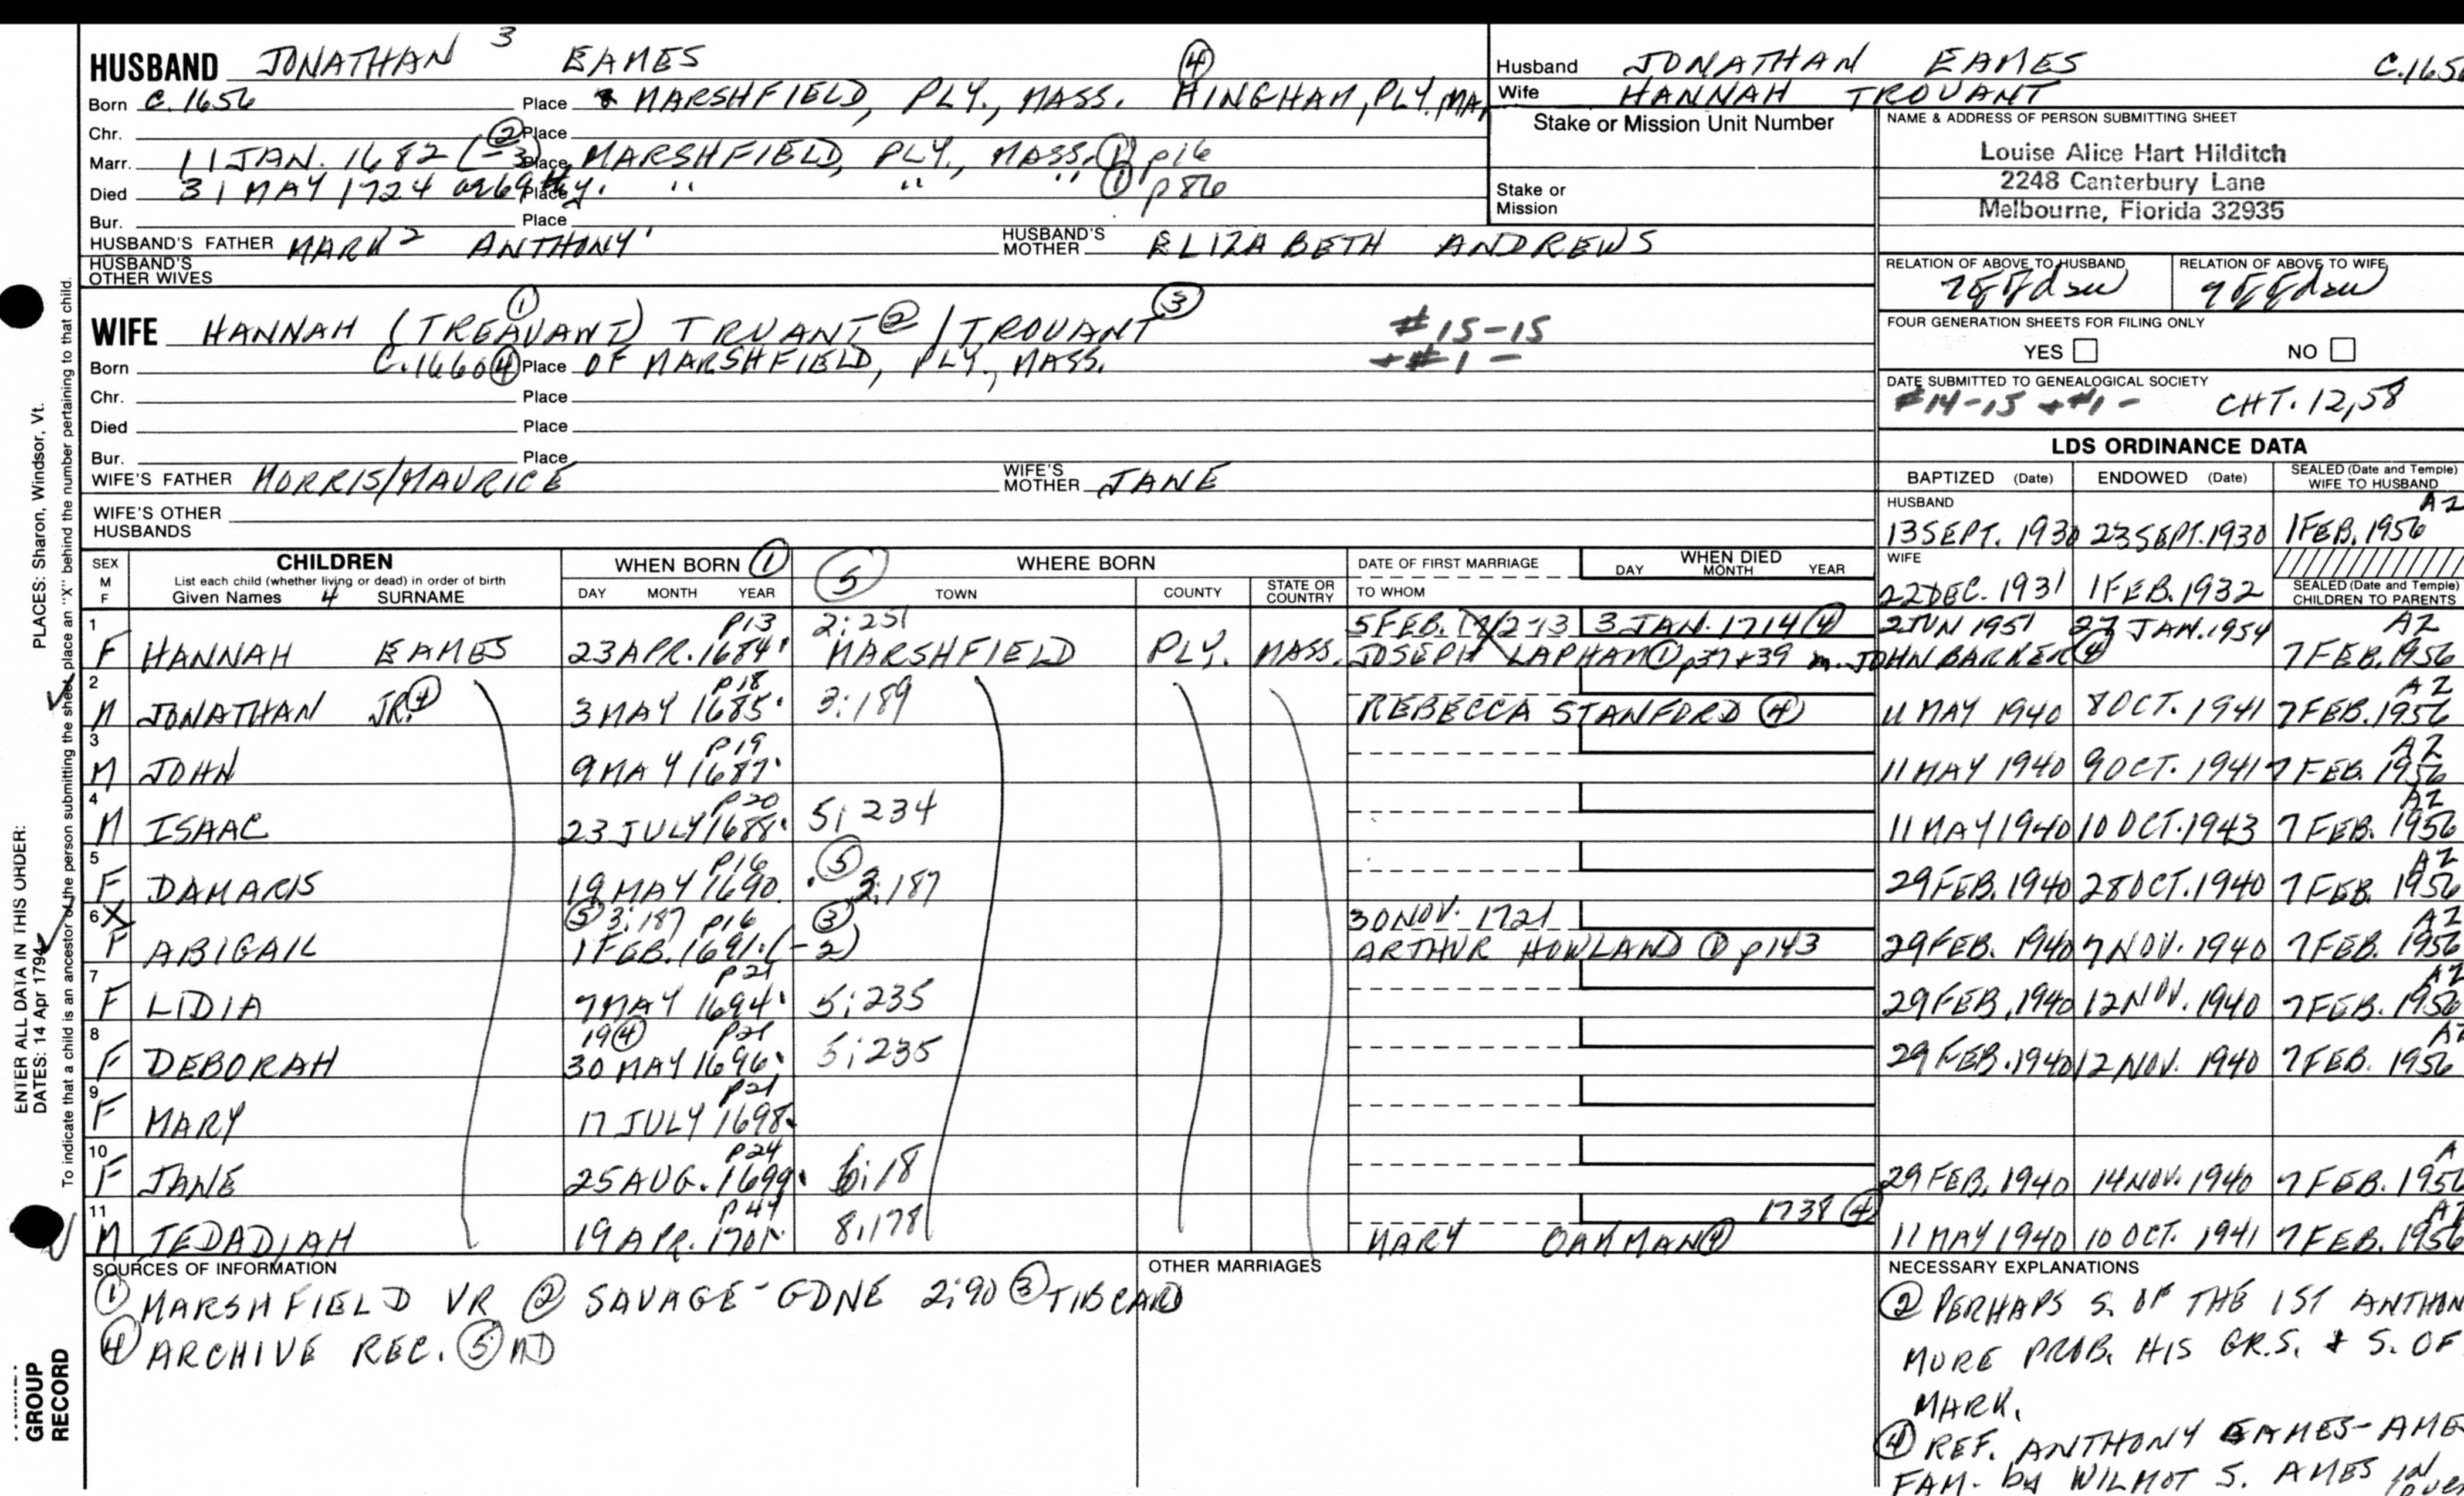 HUSBAND JONATHAN 3 EAMES
Born C. 1656 Place MARSHFIELD, PLY., MASS. ④ HINGHAM, PLY. MA
Chr. Place
Marr. 11 JAN. 1682 (-3) ② Place MARSHFIELD, PLY., MASS. ① p16
Died 31 MAY 1724 ae 69 y. Place " " " ① p86
Bur. Place
HUSBAND'S FATHER MARK 2 ANTHONY 1 HUSBAND'S MOTHER ELIZABETH ANDREWS
HUSBAND'S OTHER WIVES
WIFE HANNAH (TREAVANT) ① TRUANT ② / TROUANT ③ #15-15
+#1-
Born C. 1660 ④ Place OF MARSHFIELD, PLY., MASS.
Chr. Place
Died Place
Bur. Place
WIFE'S FATHER MORRIS/MAURICE WIFE'S MOTHER JANE
WIFE'S OTHER HUSBANDS
Husband JONATHAN EAMES C.165
Wife HANNAH TROUANT
Stake or Mission Unit Number
Stake or Mission
NAME & ADDRESS OF PERSON SUBMITTING SHEET
Louise Alice Hart Hilditch
2248 Canterbury Lane
Melbourne, Florida 32935
RELATION OF ABOVE TO HUSBAND RELATION OF ABOVE TO WIFE
FOUR GENERATION SHEETS FOR FILING ONLY
YES NO
DATE SUBMITTED TO GENEALOGICAL SOCIETY
#14-15 +#1- CHT. 12,58
LDS ORDINANCE DATA
BAPTIZED (Date) ENDOWED (Date) SEALED (Date and Temple) WIFE TO HUSBAND
HUSBAND AZ
13 SEPT. 1930 23 SEPT. 1930 1 FEB. 1956
WIFE
22 DEC. 1931 1 FEB. 1932 SEALED (Date and Temple) CHILDREN TO PARENTS
SEX M F CHILDREN List each child (whether living or dead) in order of birth Given Names 4 SURNAME
WHEN BORN ① DAY MONTH YEAR ⑤ WHERE BORN TOWN COUNTY STATE OR COUNTRY
DATE OF FIRST MARRIAGE TO WHOM WHEN DIED DAY MONTH YEAR
1 p13 2:251 5 FEB. 1712-13 3 JAN. 1714 ④ 2 JUN 1951 27 JAN. 1954 AZ
F HANNAH EAMES 23 APR. 1684 MARSHFIELD PLY. MASS. JOSEPH LAPHAM ① p37+39 m. JOHN BARKER ④ 7 FEB. 1956
2 p18 AZ
M JONATHAN JR. ④ 3 MAY 1685 3:189 REBECCA STANFORD ④ 11 MAY 1940 8 OCT. 1941 7 FEB. 1956
3 p19 AZ
M JOHN 9 MAY 1687 11 MAY 1940 9 OCT. 1941 7 FEB. 1956
4 p20 AZ
M ISAAC 23 JULY 1688 5:234 11 MAY 1940 10 OCT. 1943 7 FEB. 1956
5 p16 ⑤ AZ
F DAMARIS 19 MAY 1690 2:187 29 FEB. 1940 28 OCT. 1940 7 FEB. 1956
6 X ⑤ 3:187 p16 ③ 30 NOV. 1721 AZ
F ABIGAIL 1 FEB. 1691 (-2) ARTHUR HOWLAND ① p143 29 FEB. 1940 7 NOV. 1940 7 FEB. 1956
7 p21 AZ
F LIDIA 7 MAY 1694 5:235 29 FEB. 1940 12 NOV. 1940 7 FEB. 1956
8 19 ④ p21 AZ
F DEBORAH 30 MAY 1696 5:235 29 FEB. 1940 12 NOV. 1940 7 FEB. 1956
9 p21
F MARY 17 JULY 1698
10 p24 A
F JANE 25 AUG. 1699 6:18 29 FEB. 1940 14 NOV. 1940 7 FEB. 195
11 p44 1738 ④ AZ
M JEDADIAH 19 APR. 1701 8:178 MARY OAKMAN ④ 11 MAY 1940 10 OCT. 1941 7 FEB. 1956
SOURCES OF INFORMATION
① MARSHFIELD VR ② SAVAGE-GDNE 2:90 ③ TIB CARD
④ ARCHIVE REC. ⑤ MD
OTHER MARRIAGES
NECESSARY EXPLANATIONS
② PERHAPS S. OF THE 1ST ANTHON
MORE PROB. HIS GR.S. & S. OF
MARK.
④ REF. ANTHONY EAMES-AME
FAM. by WILMOT S. AMES
PLACES: Sharon, Windsor, Vt.
ENTER ALL DATA IN THIS ORDER:
DATES: 14 Apr 1794
To indicate that a child is an ancestor of the person submitting the sheet, place an "X" behind the number pertaining to that child.
GROUP
RECORD